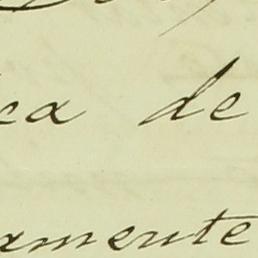 ca de
amente